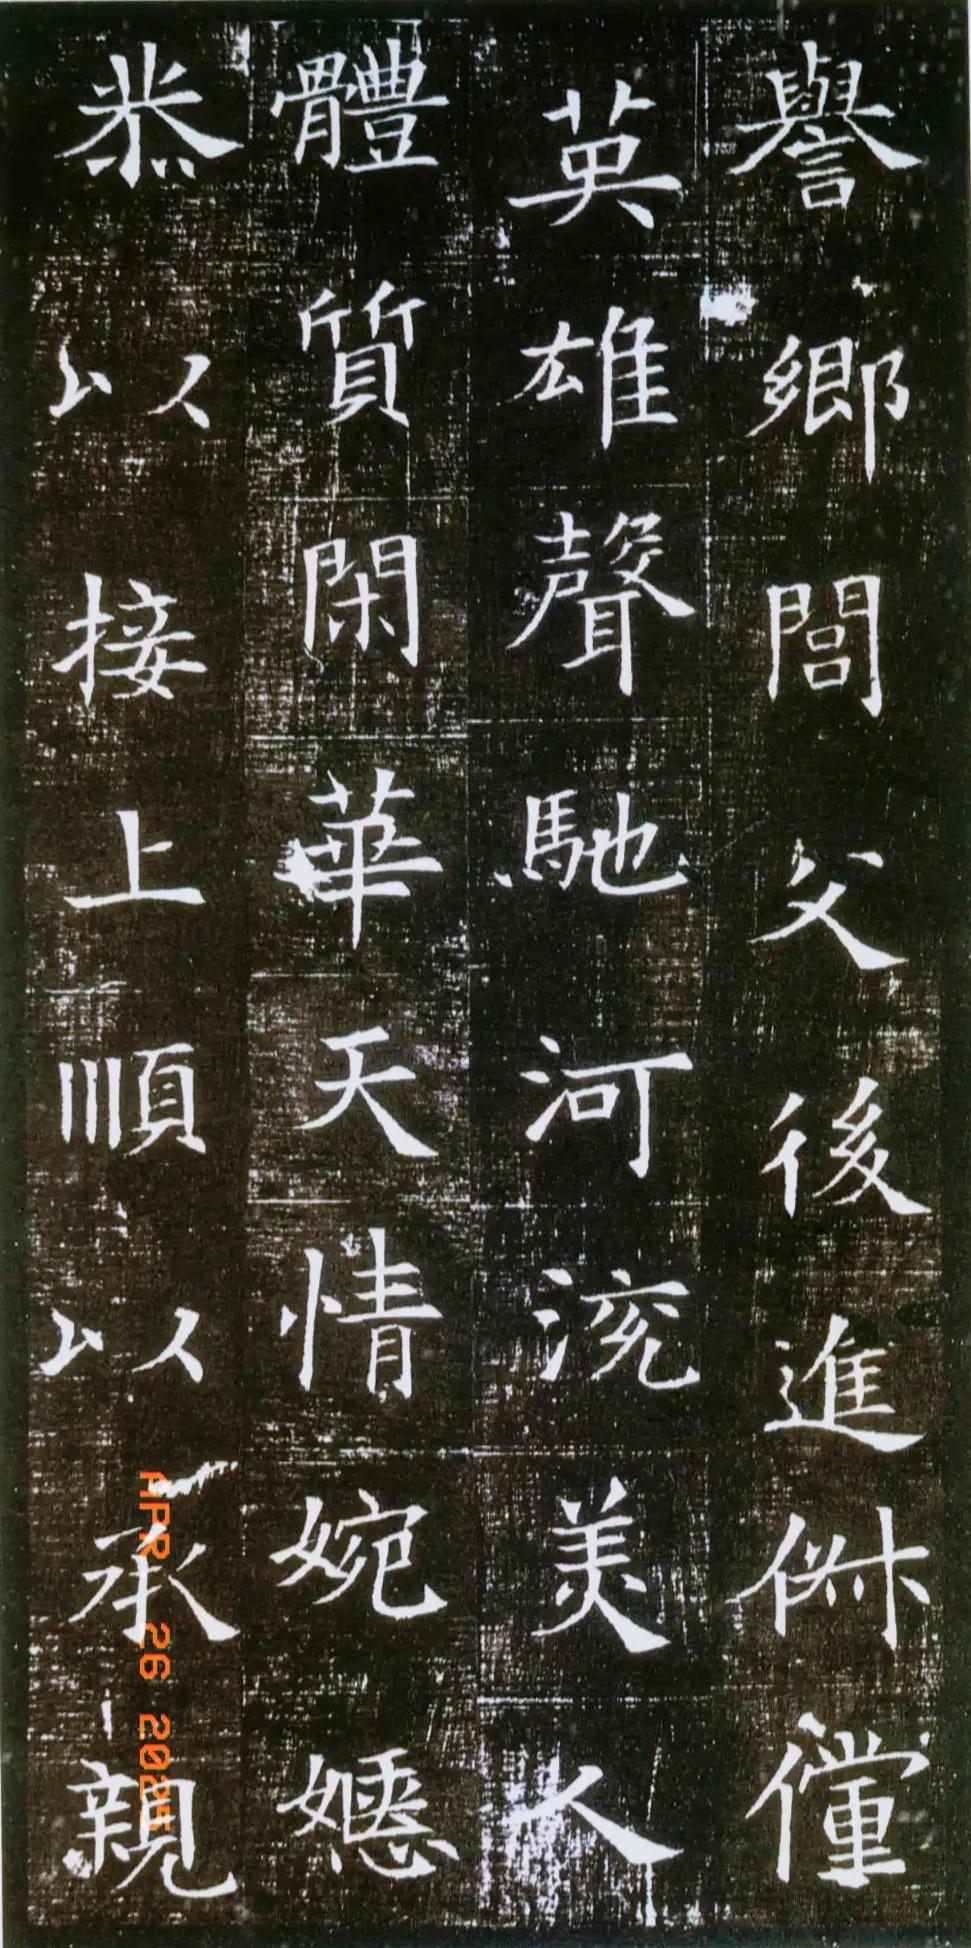 譽鄉閭父後進俶儻
英雄聲馳河沇美人
體質閑華天情婉嫕
恭以接上順以承親
APR 26 2025